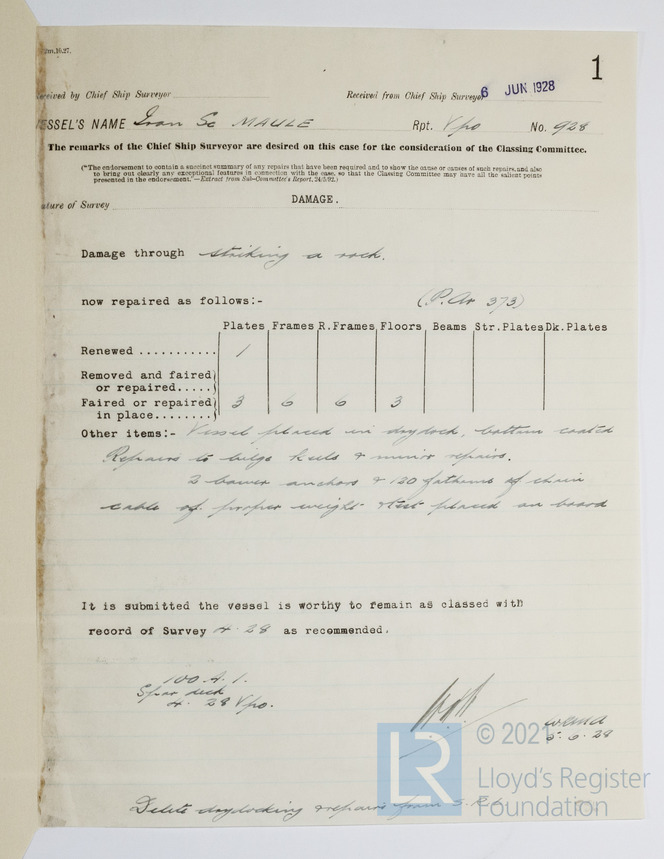 1
Received by Chief Ship Surveyor
Received from Chief Ship Surveyor 6 JUN 1928
VESSEL'S NAME MAULE Rpt. Vpo No. 928
The remarks of the Chief Ship Surveyor are desired on this case for the consideration of the Classing Committee.
("The endorsement to contain a succinct summary of any repairs that have been required and to show the cause or causes of such repairs, and also
to bring out clearly any exceptional features in connection with the case, so that the Classing Committee may have all the salient points
presented in the endorsement."—Extract from Sub-Committee's Report, 24/5/92.)
Nature of Survey DAMAGE.
Damage through striking a rock.
now repaired as follows:- (P. Ar 373)
Plates Frames R.Frames Floors Beams Str.Plates Dk.Plates
Renewed ........... 1
Removed and faired
or repaired.....
Faired or repaired 3 6 6 3
in place........
Other items:- Vessel placed in drydock, bottom coated
Repairs to bilge keels & minor repairs.
2 bower anchors & 120 fathoms of chain
cable of proper weight & test placed on board
It is submitted the vessel is worthy to remain as classed with
record of Survey 4.28 as recommended.
100.A.1.
Spar deck
4. 28 Vpo.
5.6.28
© 2021
LR
Lloyd's Register
Foundation
Delete drydocking & repairs from